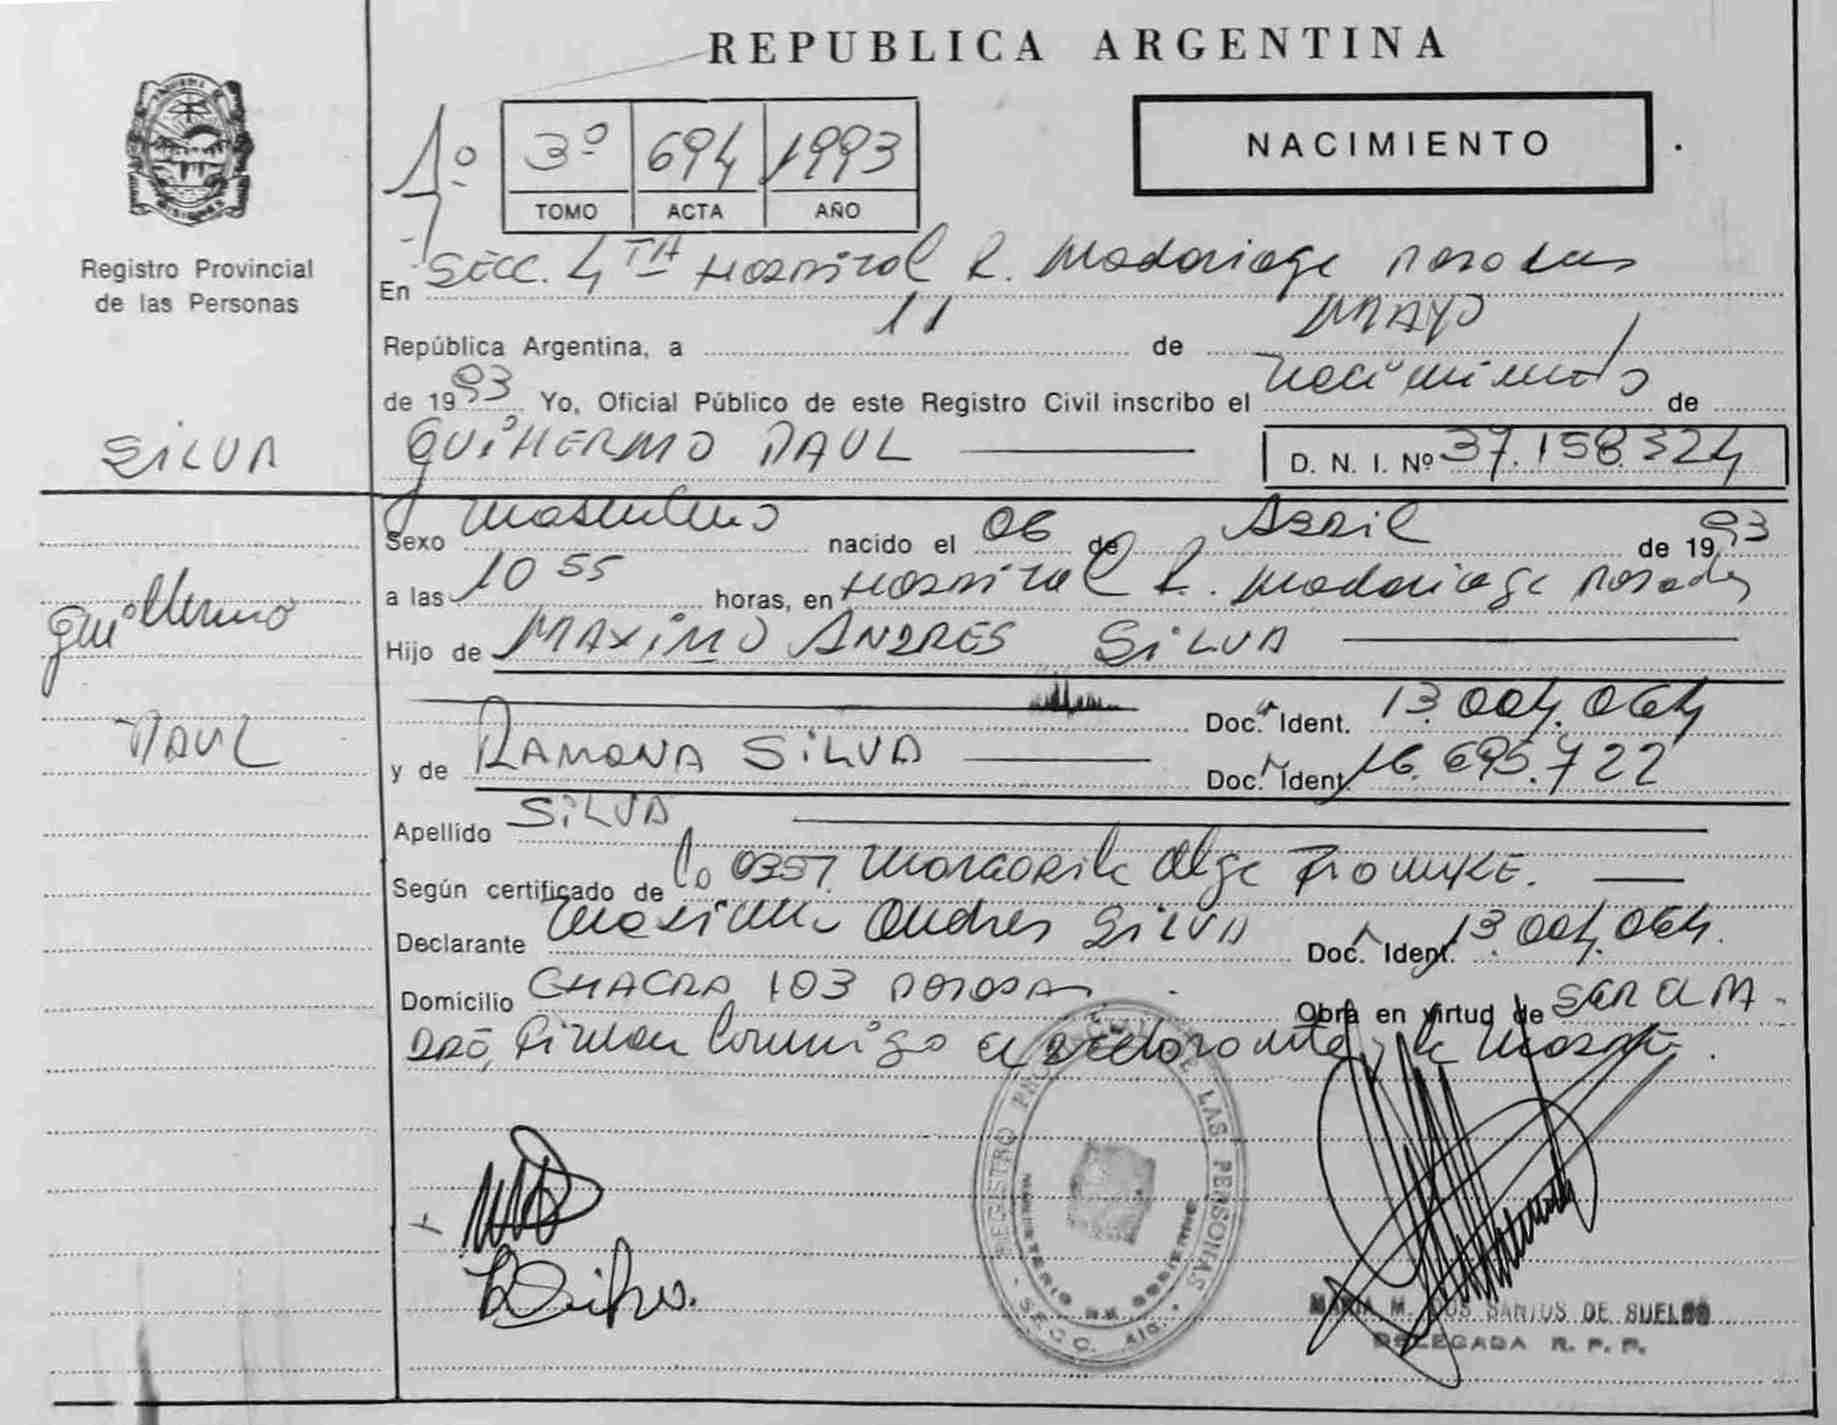 REPUBLICA ARGENTINA
NACIMIENTO
1º
3º 694 1993
TOMO ACTA AÑO
Registro Provincial
de las Personas
En SECC. 4TA Hospital R. Madariaga Posadas
República Argentina, a 11 de MAYO
de 1993 Yo, Oficial Público de este Registro Civil inscribo el nacimiento de
SILVA
GUILLERMO RAUL
D. N. I. Nº 37.158.324
Sexo masculino nacido el 06 de Abril de 1993
a las 10 55 horas, en Hospital R. Madariaga Posadas
Guillermo
Hijo de MAXIMO ANDRES SILVA
Doc. Ident. 13.004.064
RAUL
y de RAMONA SILVA Doc. Ident. 16.695.722
Apellido SILVA
Según certificado de 0357 Margarita Olga
Declarante Maximo Andres SILVA Doc. Ident. 13.004.064.
Domicilio CHACRA 103 POSADAS. Obra en virtud de SER EL PA-
DRE, Firman Conmigo el declarante y la Madre.
REGISTRO PROVINCIAL DE LAS PERSONAS
MINISTERIO DE GOBIERNO
SECC. 4ta.
MARIA M. DOS SANTOS DE SUELDO
DELEGADA R. P. P.